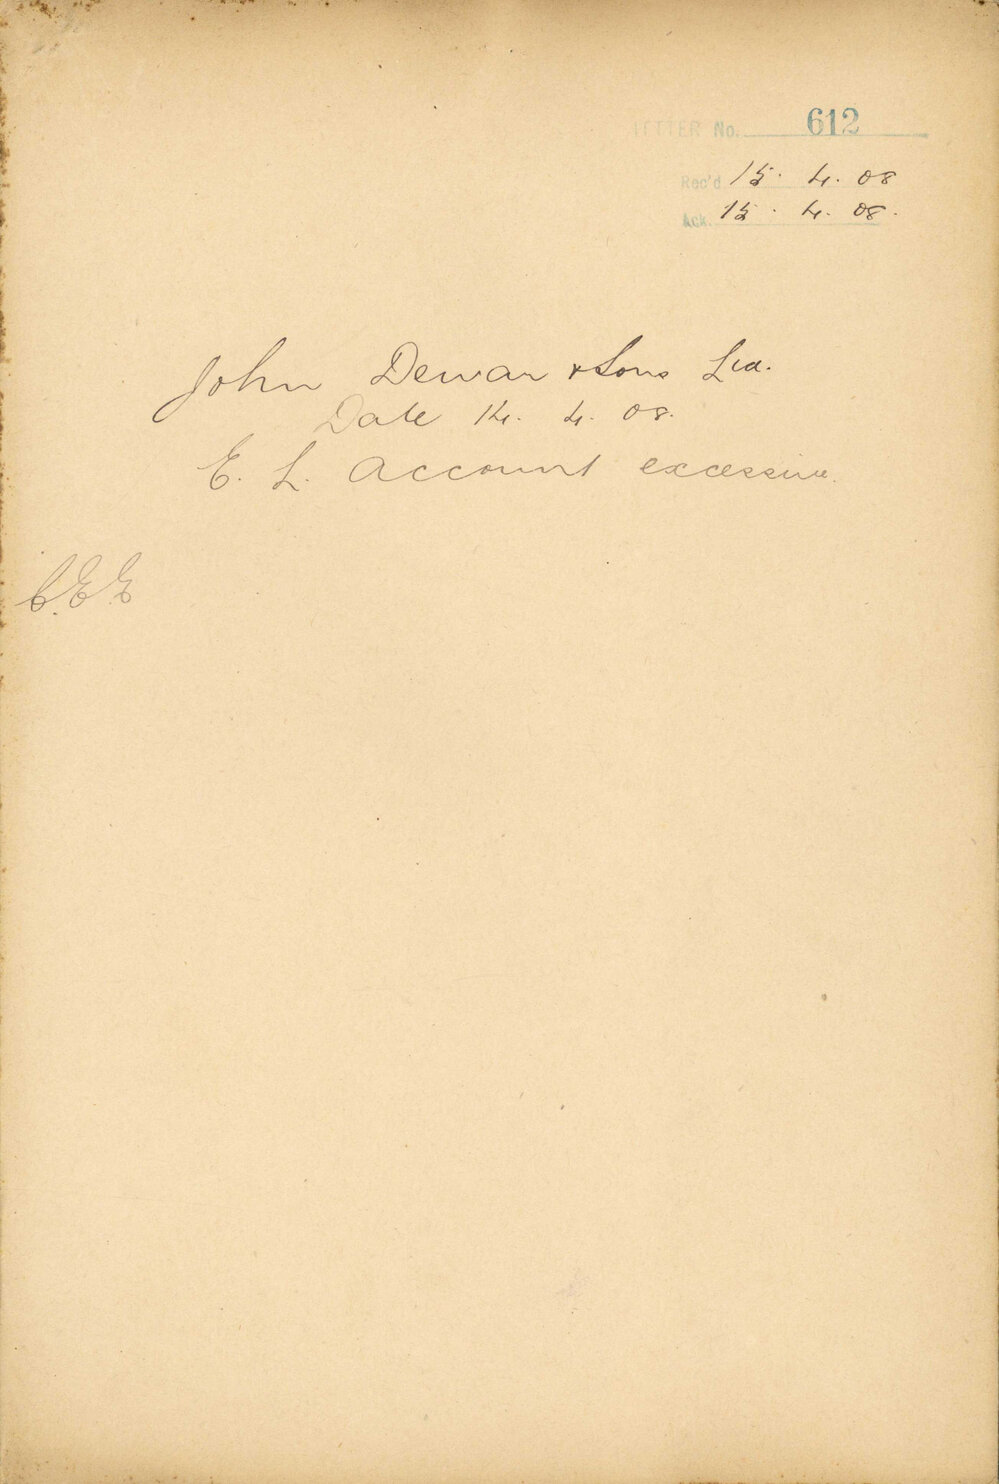 LETTER No. 612
Rec'd. 15. 4. 08
Ack. 15. 4. 08.
John Dewar & Sons Ltd.
Date 14. 4. 08.
E. L. Account excessive.
C.E.E